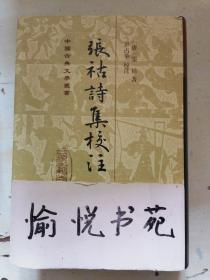 中國古典文學叢書
張祜詩集校注
愉悦书苑